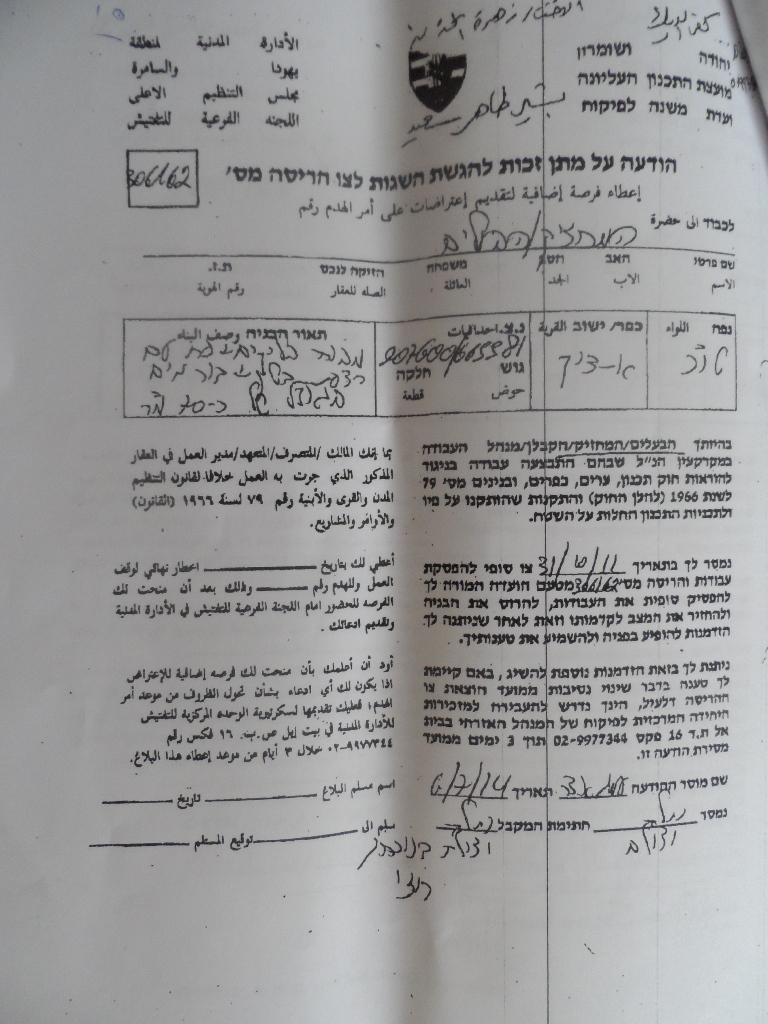 الأدارة المدنية لمنطقة
يهودا والسامرة
مجلس التنظيم الاعلى
اللجنه الفرعية للتفتيش
יהודה ושומרון
מועצת התכנון העליונה
ועדת משנה לפיקוח
بشير طاهر سعيد
הודעה על מתן זכות להגשת השגות לצו הריסה מס'
306162
إعطاء فرصة إضافية لتقديم إعتراضات على أمر الهدم رقم
לכבוד الى حضرة
המחזיק/הבעלים
שם פרטי האב הסב משפחה הזיקה לנכס ת.ז.
الاسم الاب الجد العائلة الصله للعقار رقم الهوية
נפה اللواء
כפר/ ישוב القرية
נ.צ. احداثيات
207600/665981
גוש חלקה
حوض قطعة
תאור הבניה وصف البناء
בהיותך הבעלים/המחזיק/הקבלן/מנהל העבודה
במקרקעין הנ"ל שבהם התבצעה עבודה בניגוד
להוראות חוק תכנון, ערים, כפרים, ובנינים מס' 79
לשנת 1966 (להלן החוק) והתקנות שהותקנו על פיו
ולתכניות התכנון החלות על השטח.
بما إنك المالك /المتصرف/المتعهد/مدير العمل في العقار
المذكور الذي جرت به العمل خلافا لقانون التنظيم
المدن والقرى والأبنية رقم ٧٩ لسنة ١٩٦٦ (القانون)
والأوامر والمشاريع.
נמסר לך בתאריך צו סופי להפסקת
עבודות והריסה מס' 306162 מטעם הועדה המורה לך
להפסיק סופית את העבודות, להרוס את הבניה
ולהחזיר את המצב לקדמותו וזאת לאחר שניתנה לך
הזדמנות להופיע בפניה ולהשמיע את טענותיך.
أعطي لك بتاريخ اخطار نهائي لوقف
العمل وللهدم رقم وذلك بعد أن منحت لك
الفرصه للحضور امام اللجنة الفرعية للتفتيش في الأدارة المدنية
وتقديم ادعائك.
ניתנת לך בזאת הזדמנות נוספת להשיג, באם קיימת
לך טענה בדבר שינוי נסיבות ממועד הוצאת צו
ההריסה דלעיל, הינך נדרש להעבירה למזכירות
היחידה המרכזית לפיקוח של המנהל האזרחי בבית
אל ת.ד 16 פקס 02-9977344 תוך 3 ימים ממועד
מסירת הודעה זו.
أود أن أعلمك بأن منحت لك فرصه إضافية للإعتراض
اذا يكون لك أي ادعاء بشأن تحول الظروف من موعد أمر
الهدم، فعليك تقديمها لسكرتيرية الوحده المركزية للتفتيش
للأدارة المدنية في بيت إيل ص.ب. ١٦ فكس رقم
٠٢-٩٩٧٧٣٤٤ خلال ٣ أيام من موعد إعطاء هذا البلاغ.
שם מוסר ההודעה תאריך 6/7/14
اسم مسلم البلاغ تاريخ
נמסר חתימת המקבל
سلم الى توقيع المستلم